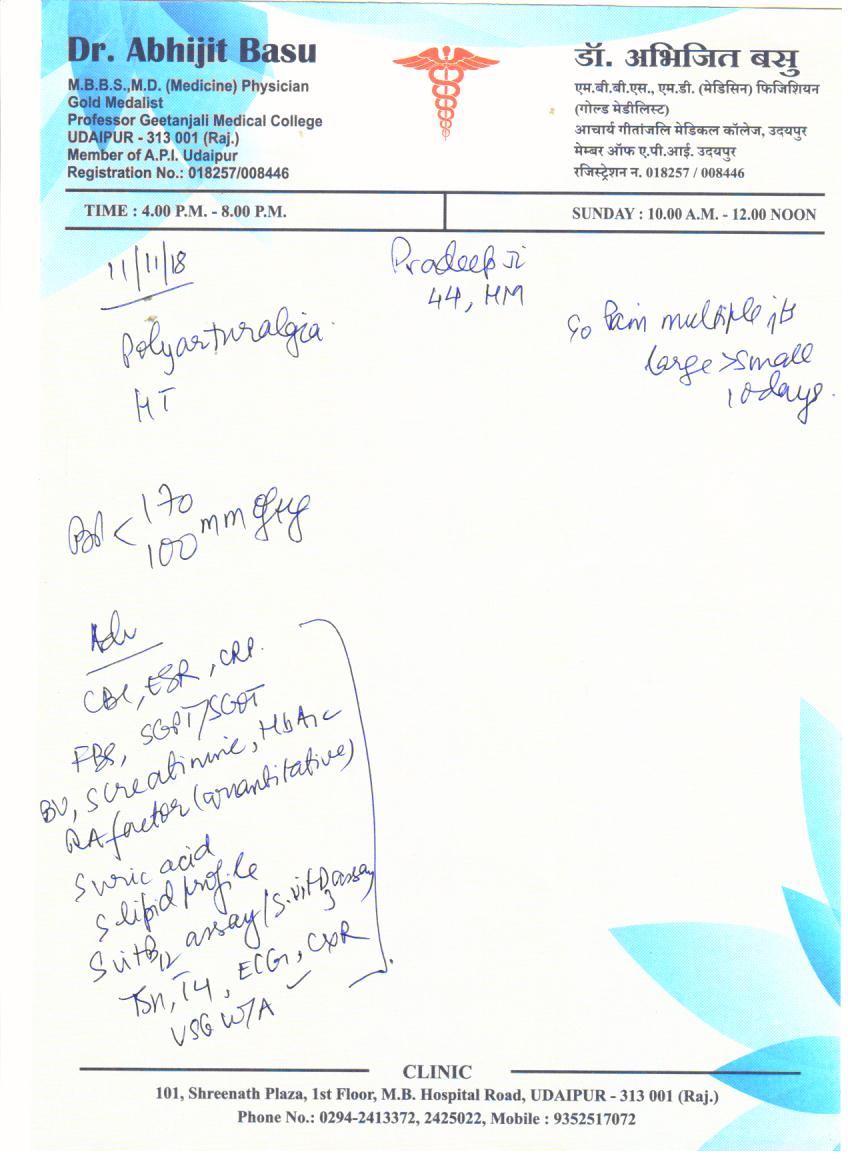 Dr. Abhijit Basu
M.B.B.S.,M.D. (Medicine) Physician
Gold Medalist
Professor Geetanjali Medical College
UDAIPUR - 313 001 (Raj.)
Member of A.P.I. Udaipur
Registration No.: 018257/008446
डॉ. अभिजित बसु
एम.बी.बी.एस., एम.डी. (मेडिसिन) फिजिशियन
(गोल्ड मेडीलिस्ट)
आचार्य गीतांजलि मेडिकल कॉलेज, उदयपुर
मेम्बर ऑफ ए.पी.आई. उदयपुर
रजिस्ट्रेशन न. 018257 / 008446
TIME : 4.00 P.M. - 8.00 P.M.
SUNDAY : 10.00 A.M. - 12.00 NOON
11/11/18
Pradeep Ji
44, HM
Polyarturalgia
HT
Pain multiple jts
large > small
10 days.
170
100 mm of Hg
Adv
CBC, ESR, CRP.
FBS, SGPT/SGOT
BU, S creatinine, HbA1c
RA factor (quantitative)
S uric acid
S lipid profile
S vit B12 assay / S. vit D3 assay
TSH, T4, ECG, CXR
USG W/A
CLINIC
101, Shreenath Plaza, 1st Floor, M.B. Hospital Road, UDAIPUR - 313 001 (Raj.)
Phone No.: 0294-2413372, 2425022, Mobile : 9352517072